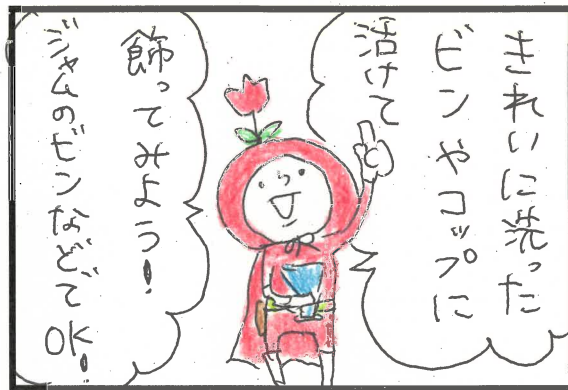 きれいに洗った
ビンやコップに
活けて
飾ってみよう!
ジャムのビンなどでOK!